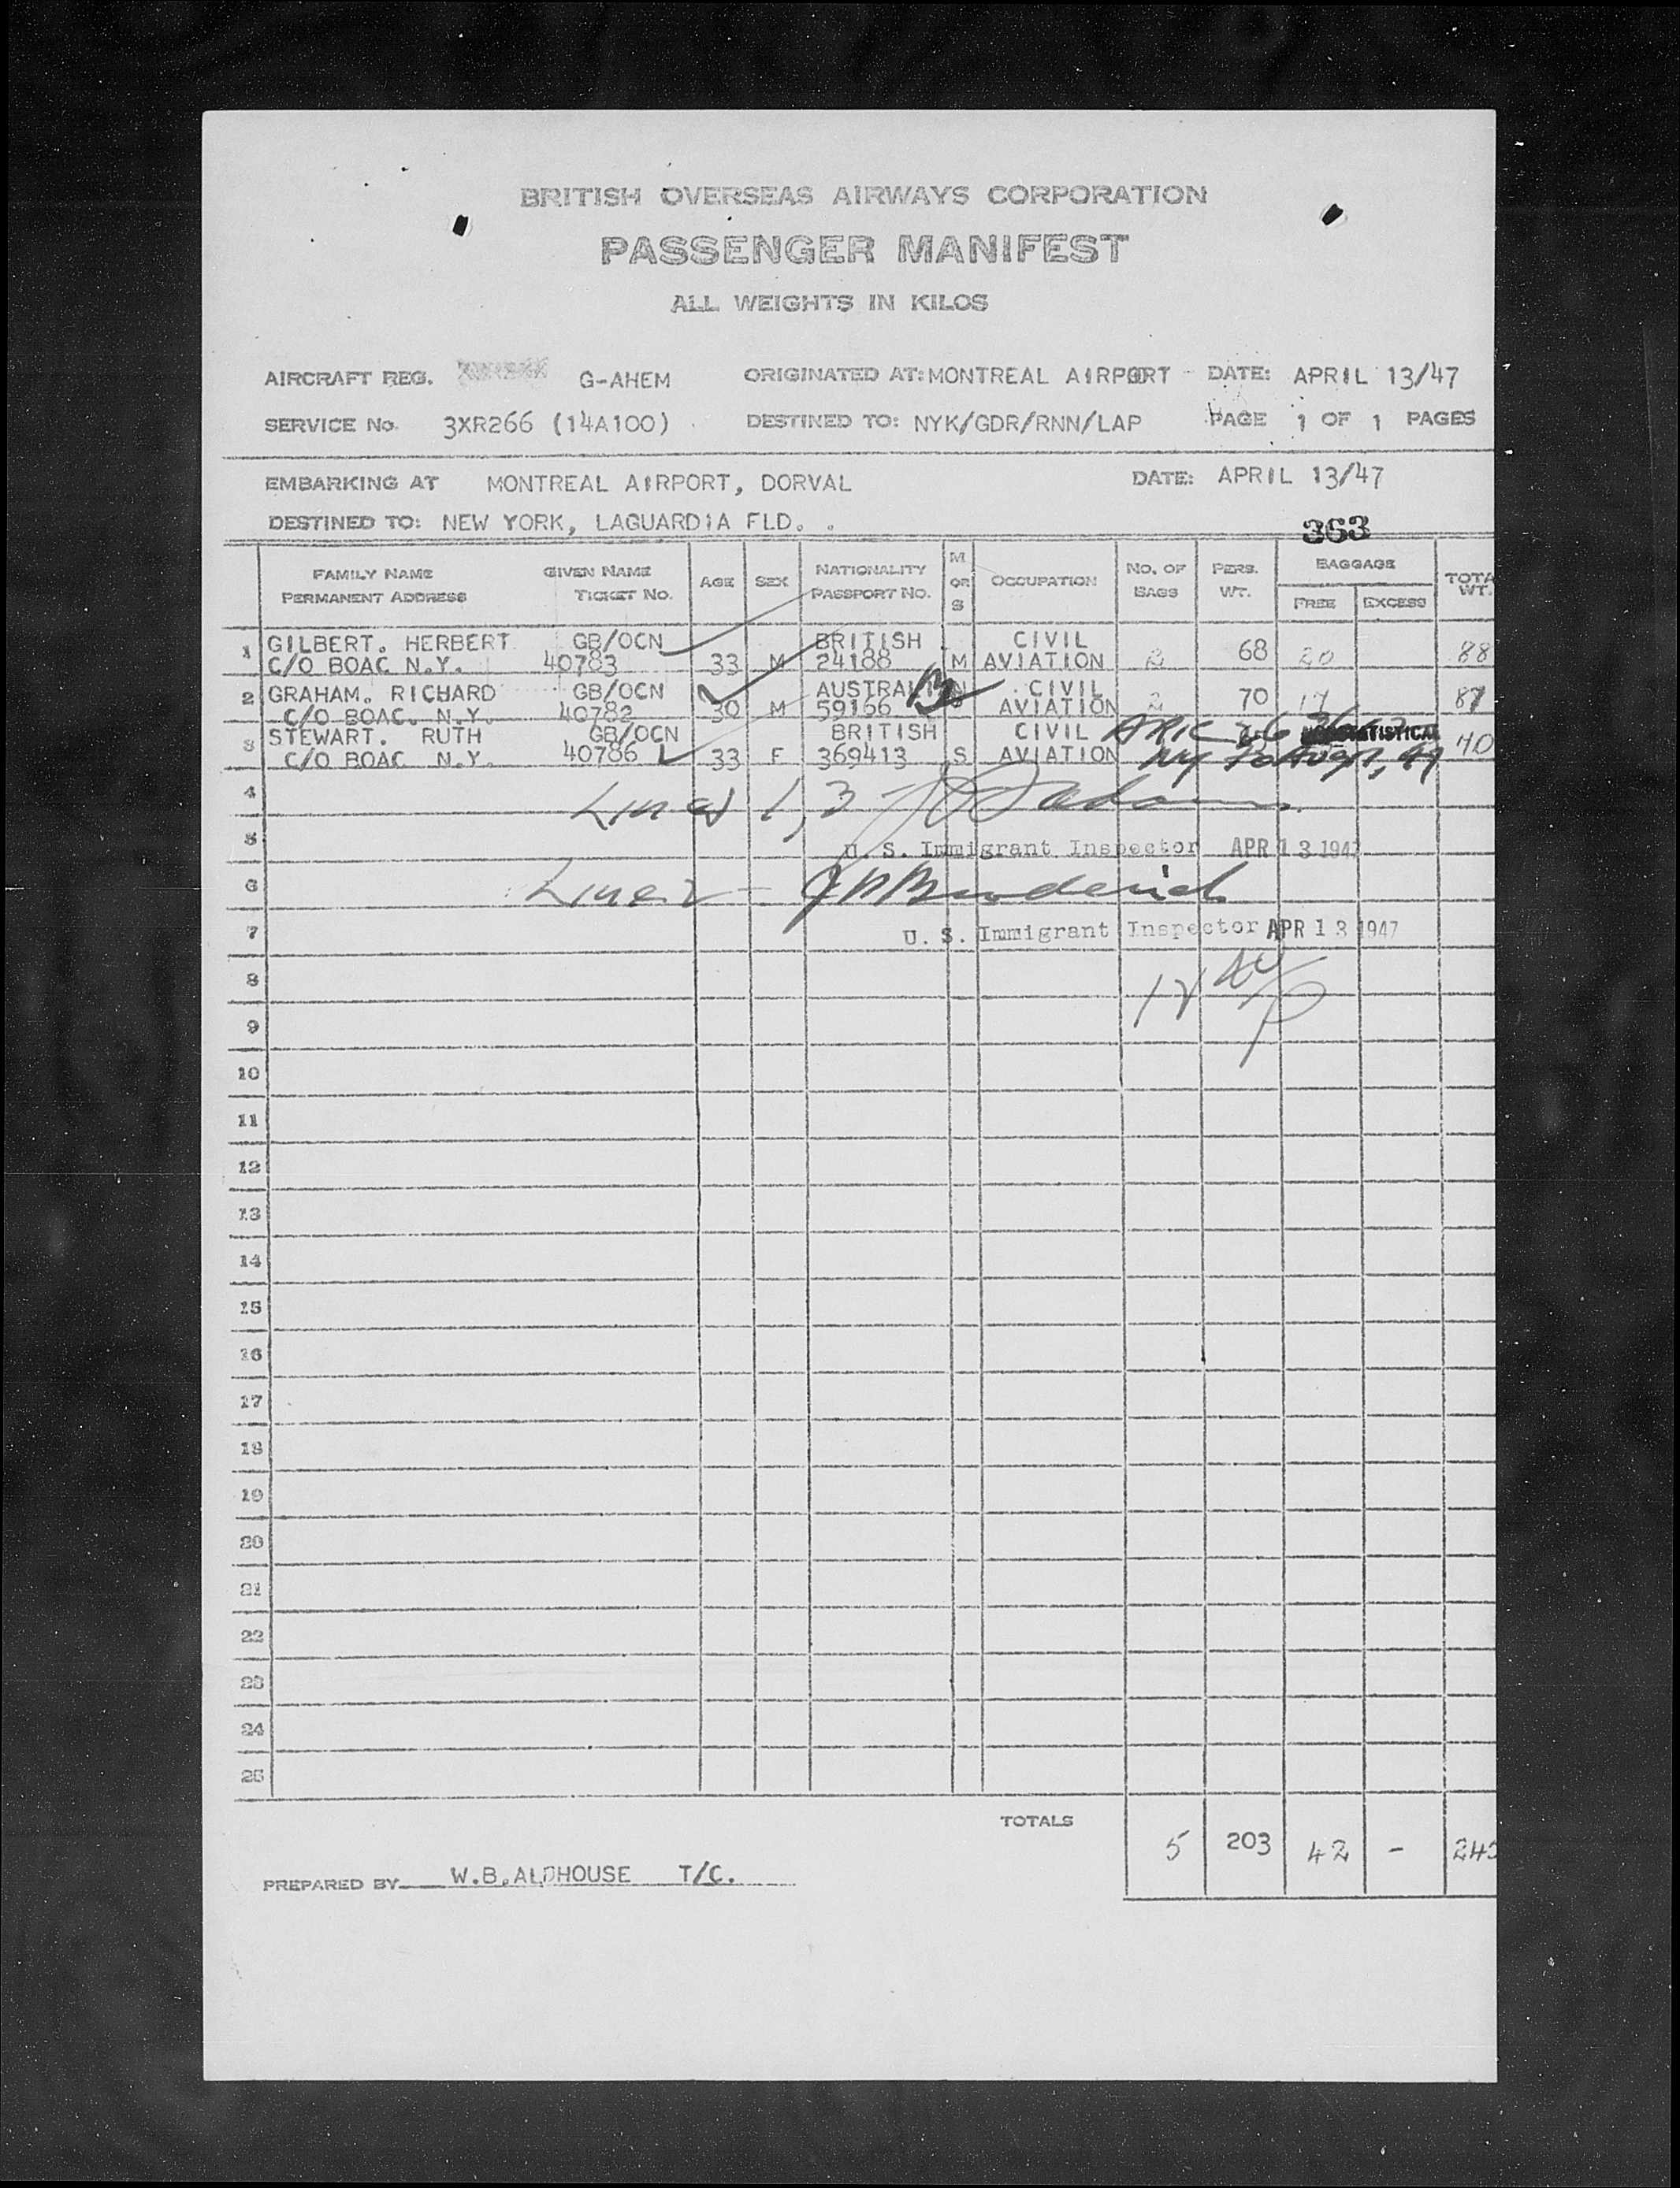 BRITISH OVERSEAS AIRWAYS CORPORATION
PASSENGER MANIFEST
ALL WEIGHTS IN KILOS
AIRCRAFT REG. G-AHEM ORIGINATED AT: MONTREAL AIRPORT DATE: APRIL 13/47
SERVICE No. 3XR266 (14A100) DESTINED TO: NYK/GDR/RNN/LAP PAGE 1 OF 1 PAGES
EMBARKING AT MONTREAL AIRPORT, DORVAL DATE: APRIL 13/47
DESTINED TO: NEW YORK, LAGUARDIA FLD. .
363
FAMILY NAME GIVEN NAME AGE SEX NATIONALITY M OR S OCCUPATION NO. OF BAGS PERS. WT. BAGGAGE TOTA WT.
PERMANENT ADDRESS TICKET NO. PASSPORT NO. FREE EXCESS
1 GILBERT. HERBERT GB/OCN BRITISH CIVIL 68 20 88
C/O BOAC N.Y. 40783 33 M 24188 M AVIATION 2
2 GRAHAM. RICHARD GB/OCN CIVIL 2 70 17 87
C/O BOAC. N.Y. 40782 30 M 59166 AVIATION
3 STEWART. RUTH GB/OCN BRITISH CIVIL
C/O BOAC N.Y. 40786 33 F 369413 S AVIATION
4 Lines 1, 3 Adams
5 U. S. Immigrant Inspector APR 13 1947
6 Line 2 - J P Broderick
7 U. S. Immigrant Inspector APR 13 1947
8
9
10
11
12
13
14
15
16
17
18
19
20
21
22
23
24
25
TOTALS 5 203 42 -
PREPARED BY W.B. T/C.